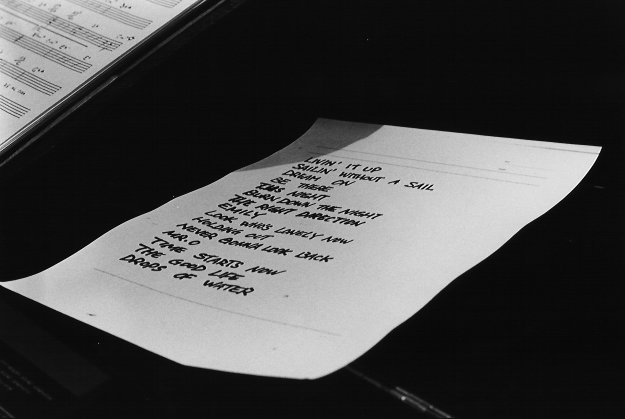 LIVIN' IT UP
SAILIN' WITHOUT A SAIL
DREAM ON
BE THERE
THIS NIGHT
BURN DOWN THE NIGHT
THE RIGHT DIRECTION
EMILY
LOOK WHO'S LONELY NOW
HOLDING OUT
NEVER GONNA LOOK BACK
MR. O
TIME STARTS NOW
THE GOOD LIFE
DROPS OF WATER